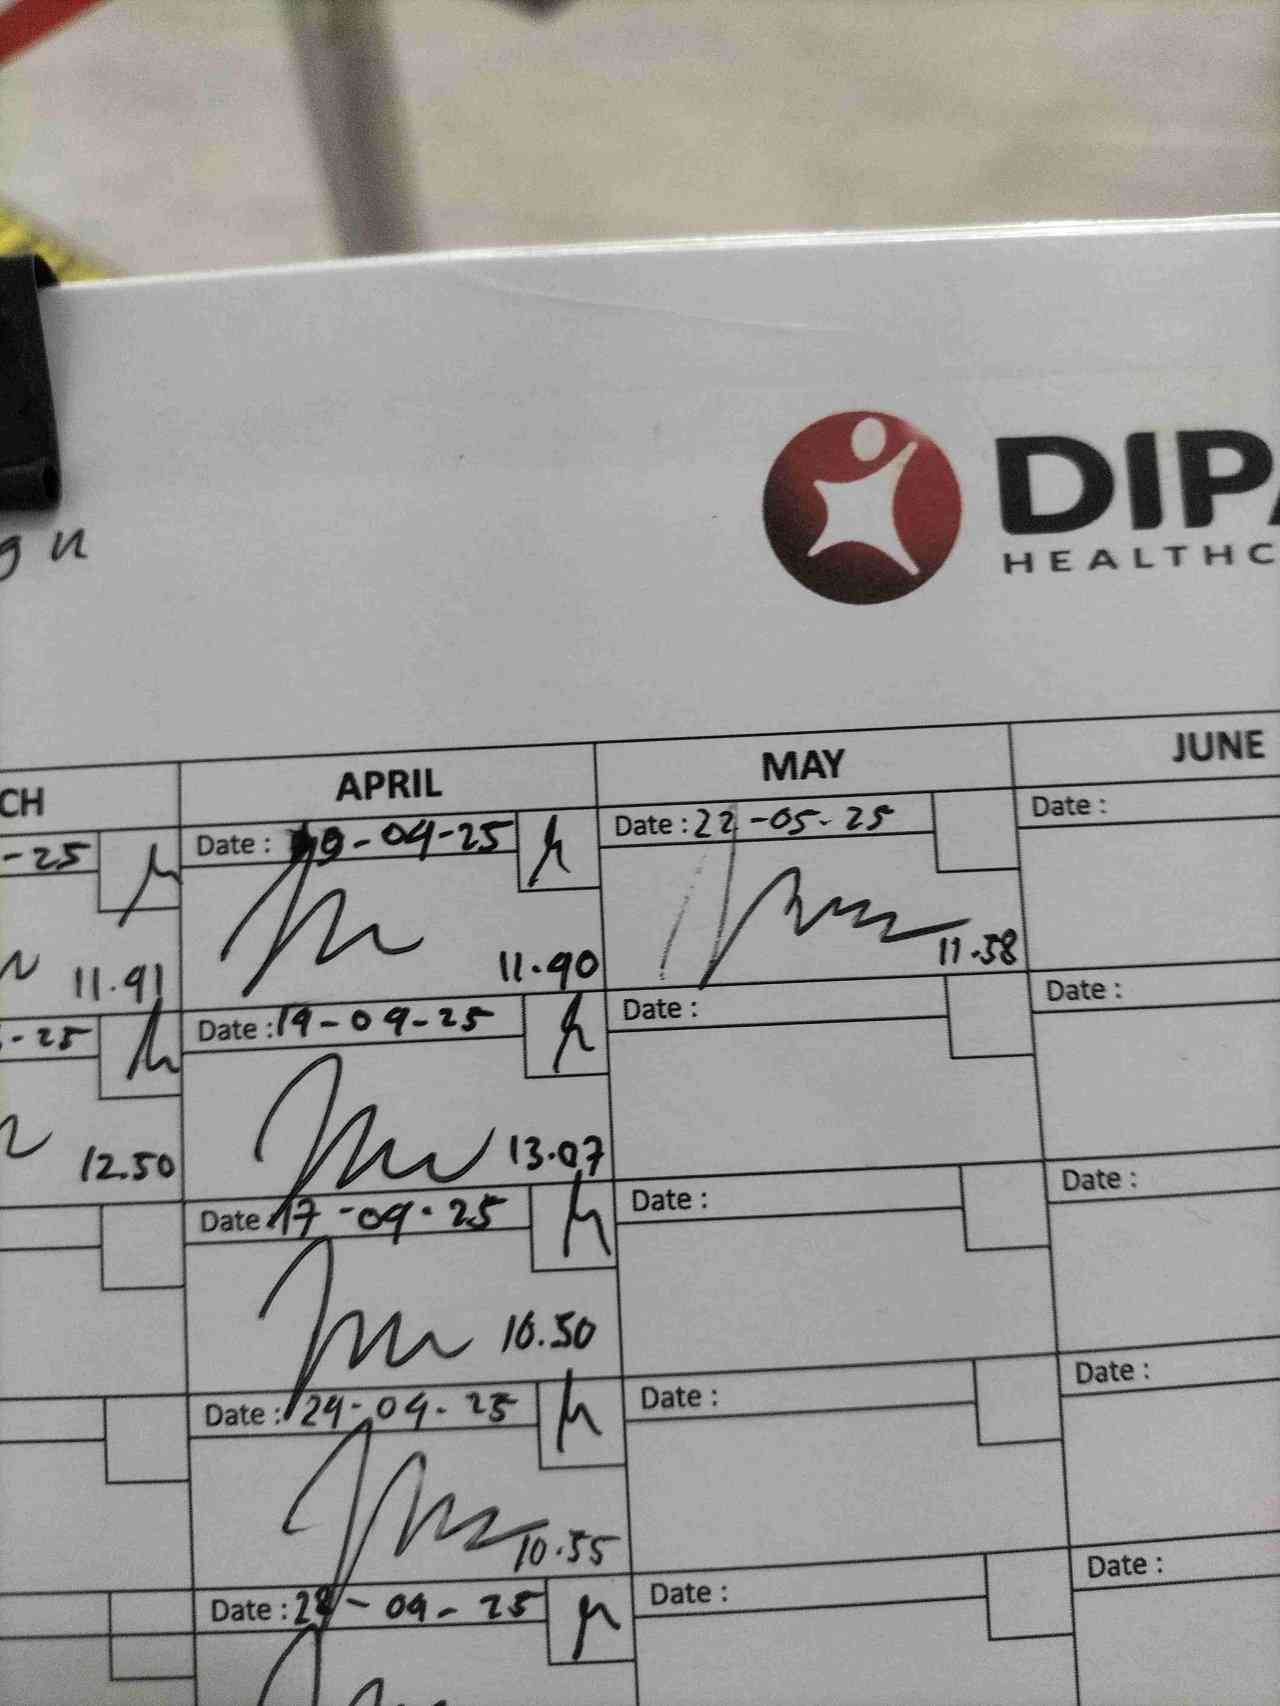 DIPA
HEALTHC
CH APRIL MAY JUNE
-25 Date : 09-04-25 Date : 22-05-25 Date :
11.91 11.90 11.58
-25 Date : 14-04-25 Date : Date :
12.50 13.07
Date : 17-04-25 Date : Date :
10.50
Date : 24-04-25 Date : Date :
10.55
Date : 28-04-25 Date : Date :